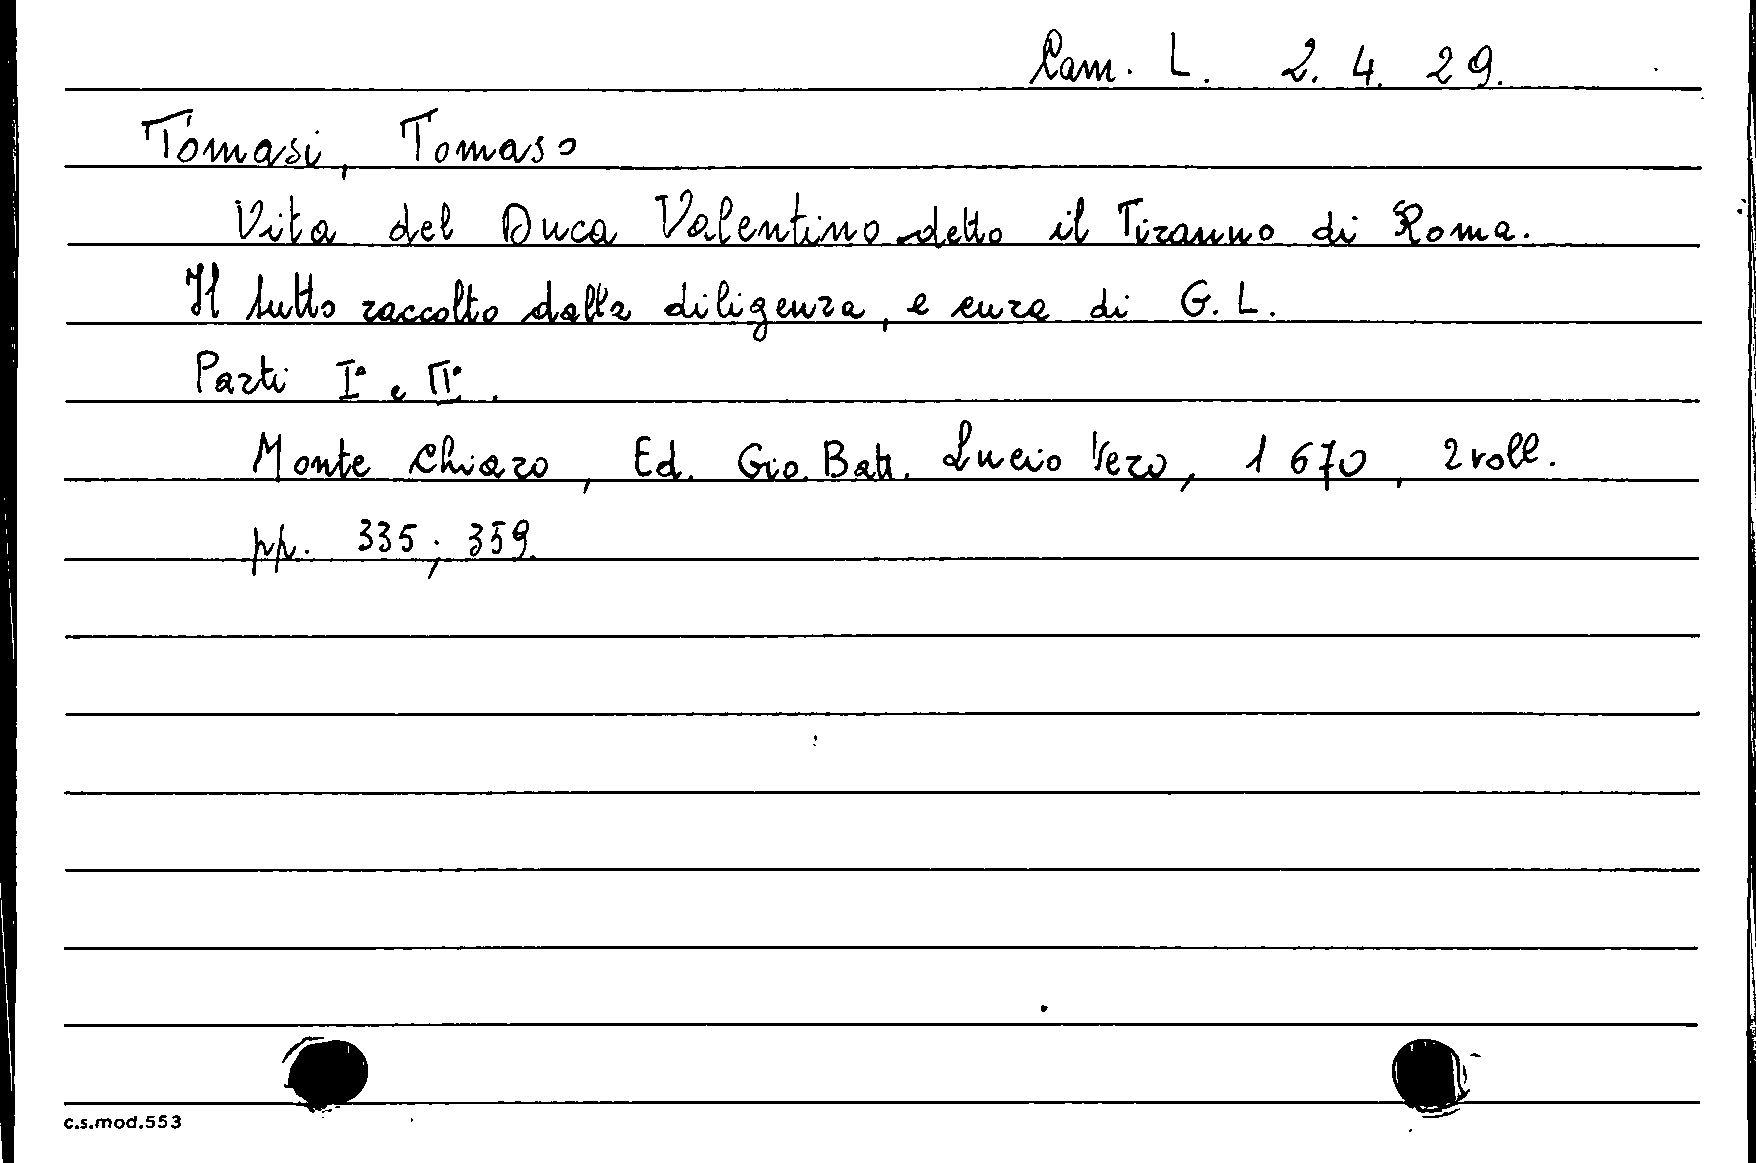 Cam. L. 2. 4. 29.
Tomasi, Tomaso
Vita del Duca Valentino detto il Tiranno di Roma.
Il tutto raccolto dalla diligenza, e cura di G. L.
Parti Iª e IIª.
Monte Chiaro, Ed. Gio. Batt. Lucio Vero, 1670, 2 voll.
pp. 335; 359.
c.s.mod.553